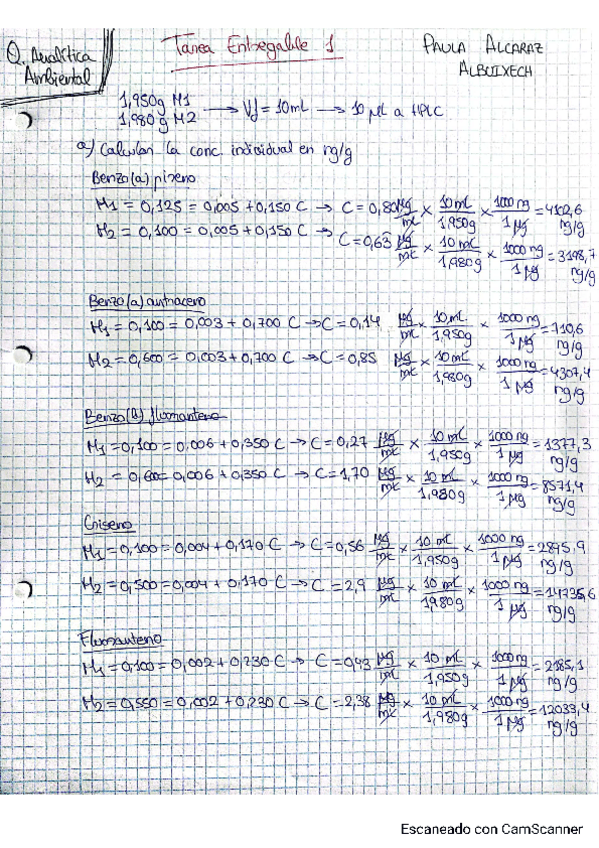 Q. Analítica
Ambiental
Tarea Entregable 1
PAULA ALCARAZ
ALBUIXECH
1,950g M1
1,980g M2 → Vf = 10mL → 10 μL a HPLC
a) Calcular la conc. individual en ng/g
Benzo(a) pireno
M1 = 0,125 = 0,005 + 0,150 C → C = 0,80 μg/mL × 10 mL/1,950g × 1000 ng/1 μg = 4102,6 ng/g
M2 = 0,100 = 0,005 + 0,150 C → C = 0,63 μg/mL × 10 mL/1,980g × 1000 ng/1 μg = 3198,7 ng/g
Benzo(a) antraceno
M1 = 0,100 = 0,003 + 0,700 C → C = 0,14 μg/mL × 10 mL/1,950g × 1000 ng/1 μg = 710,6 ng/g
M2 = 0,600 = 0,003 + 0,700 C → C = 0,85 μg/mL × 10 mL/1,980g × 1000 ng/1 μg = 4307,4 ng/g
Benzo(b) fluoranteno
M1 = 0,100 = 0,006 + 0,350 C → C = 0,27 μg/mL × 10 mL/1,950g × 1000 ng/1 μg = 1377,3 ng/g
M2 = 0,600 = 0,006 + 0,350 C → C = 1,70 μg/mL × 10 mL/1,980g × 1000 ng/1 μg = 8571,4 ng/g
Criseno
M1 = 0,100 = 0,004 + 0,170 C → C = 0,56 μg/mL × 10 mL/1,950g × 1000 ng/1 μg = 2895,9 ng/g
M2 = 0,500 = 0,004 + 0,170 C → C = 2,9 μg/mL × 10 mL/1,980g × 1000 ng/1 μg = 14735,6 ng/g
Fluoranteno
M1 = 0,100 = 0,002 + 0,230 C → C = 0,43 μg/mL × 10 mL/1,950g × 1000 ng/1 μg = 2185,1 ng/g
M2 = 0,550 = 0,002 + 0,230 C → C = 2,38 μg/mL × 10 mL/1,980g × 1000 ng/1 μg = 12033,4 ng/g
Escaneado con CamScanner